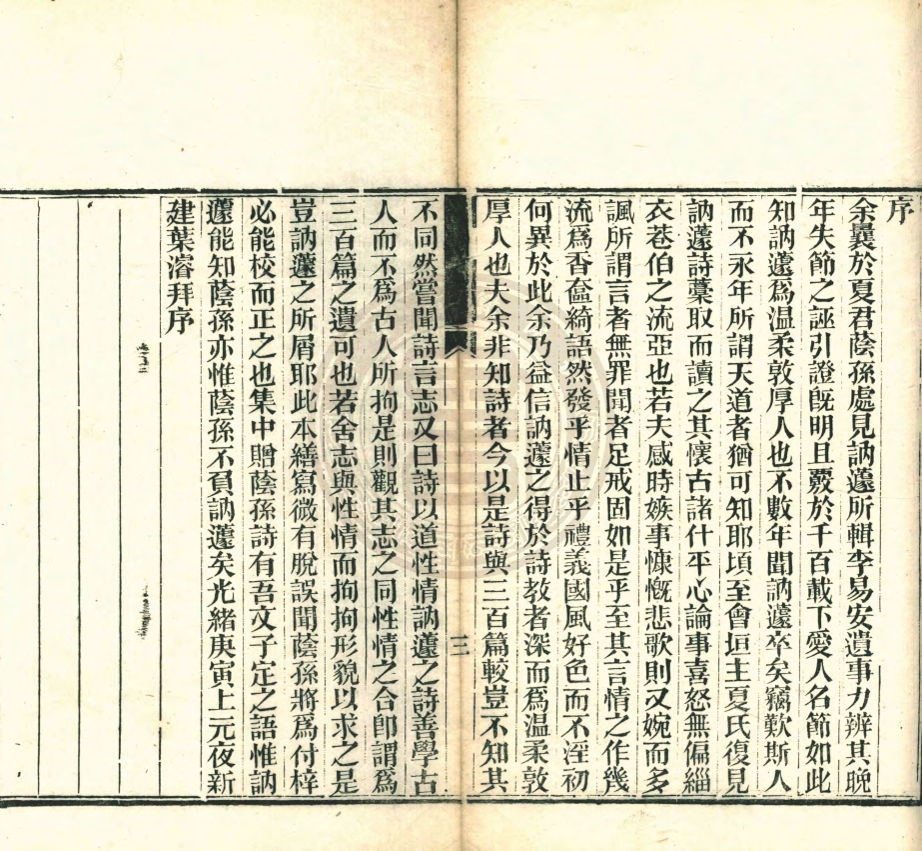 序
余曩於夏君蔭孫處見訥蘧所輯李易安遺事力辨其晚
年失節之誣引證旣明且覈於千百載下愛人名節如此
知訥蘧爲温柔敦厚人也不數年聞訥蘧卒矣竊歎斯人
而不永年所謂天道者猶可知耶頃至會垣主夏氏復見
訥蘧詩藁取而讀之其懷古諸什平心論事喜怒無偏緇
衣巷伯之流亞也若夫感時嫉事慷慨悲歌則又婉而多
諷所謂言者無罪聞者足戒固如是乎至其言情之作幾
流爲香奩綺語然發乎情止乎禮義國風好色而不淫初
何異於此余乃益信訥蘧之得於詩教者深而爲温柔敦
厚人也夫余非知詩者今以是詩與三百篇較豈不知其
三
不同然嘗聞詩言志又曰詩以道性情訥蘧之詩善學古
人而不爲古人所拘是則觀其志之同性情之合卽謂爲
三百篇之遺可也若舍志與性情而拘拘形貌以求之是
豈訥蘧之所屑耶此本繕寫微有脫誤聞蔭孫將爲付梓
必能校而正之也集中贈蔭孫詩有吾文子定之語惟訥
蘧能知蔭孫亦惟蔭孫不負訥蘧矣光緒庚寅上元夜新
建葉濬拜序